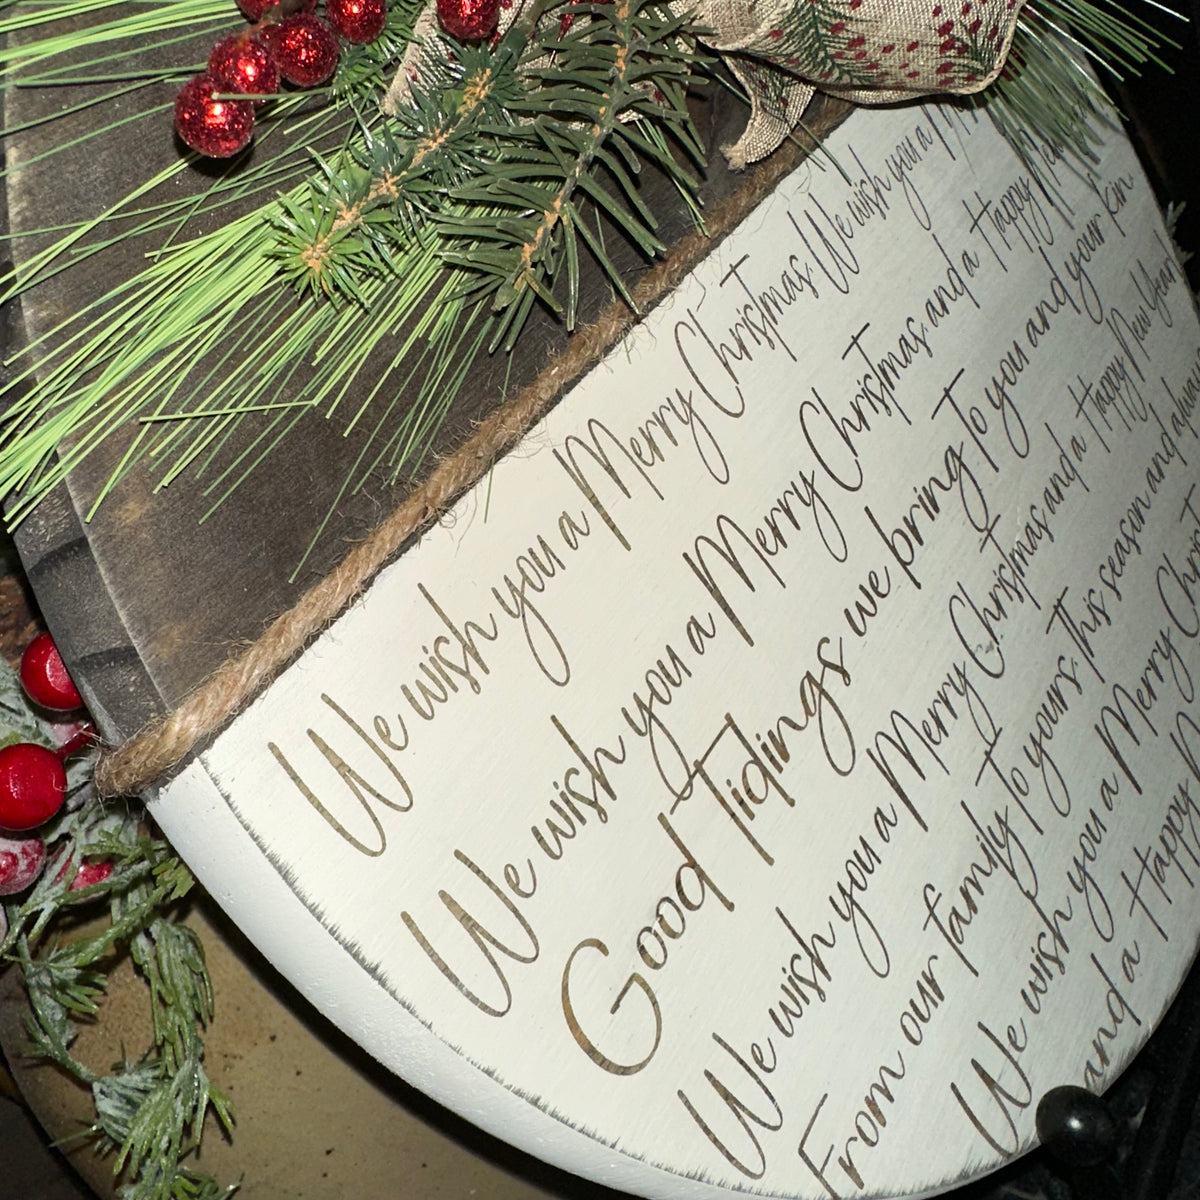 We wish you a Merry Christmas. We wish you a
We wish you a Merry Christmas and a Happy
Good Tidings we bring To you and your kin
We wish you a Merry Christmas and a Happy New Year
From our family To yours. This season and
We wish you a Merry
and a Happy